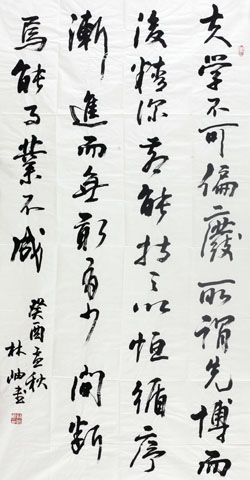 夫学不可偏廢所謂先博而
後精深若能持之以恒循序
漸進而無少間斷
焉能事業不成
癸酉孟秋
林岫書